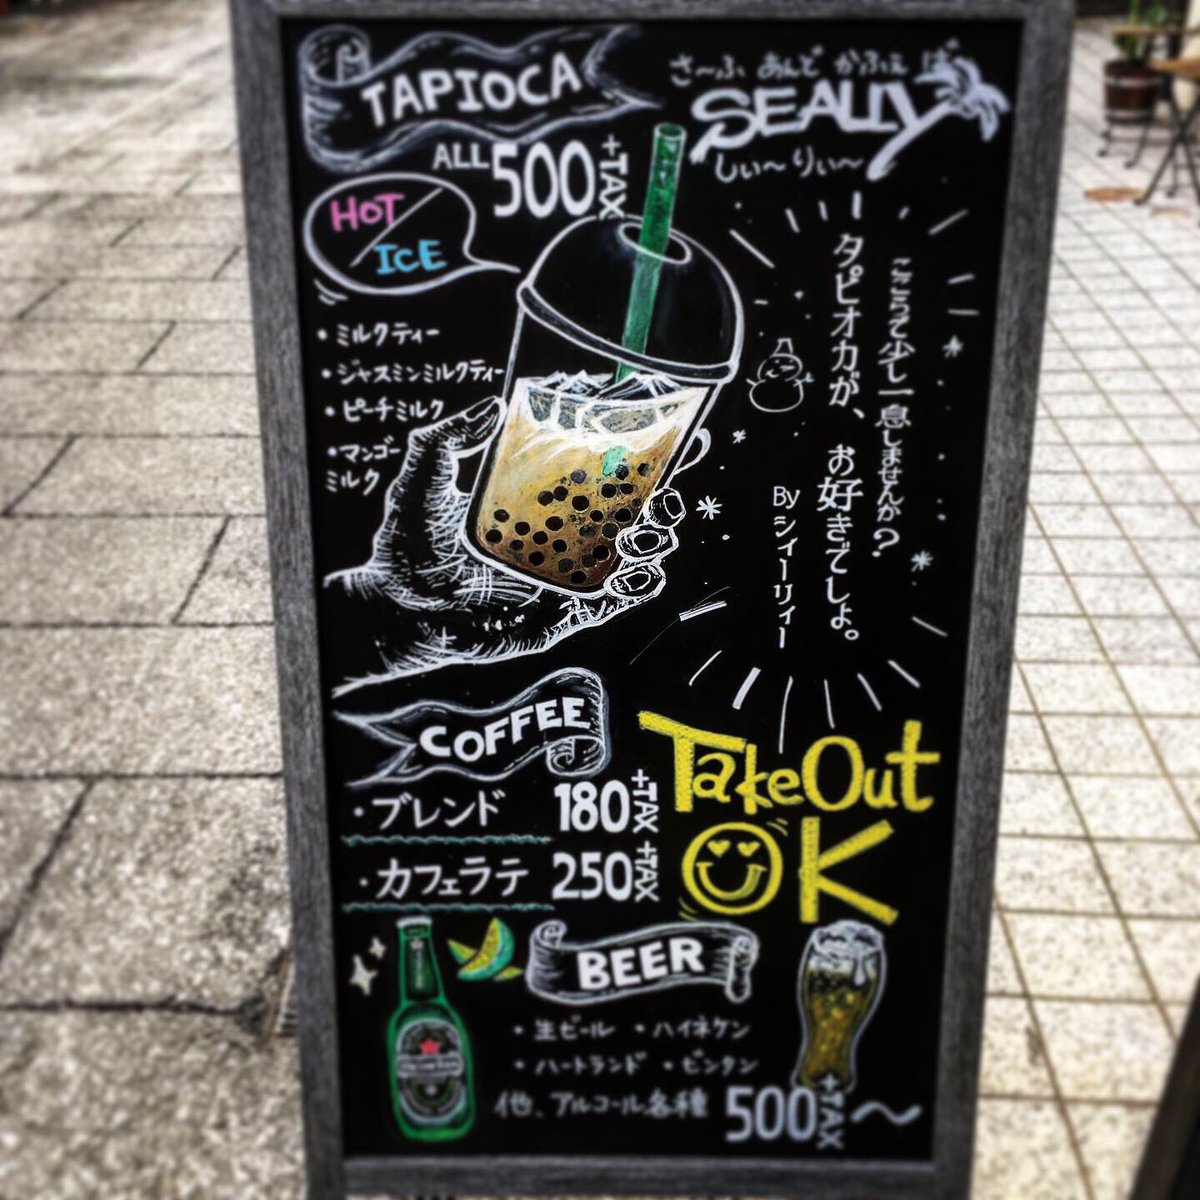 TAPIOCA
ALL 500 +TAX
HOT/ICE
・ミルクティー
・ジャスミンミルクティー
・ピーチミルク
・マンゴー
ミルク
さ〜ふ あんど かふぇ ば〜
SEALLY
しぃ〜りぃ〜
ここらで少し一息しませんか?
タピオカが、お好きでしょ。
By シィーリィー
COFFEE
・ブレンド 180 +TAX
・カフェラテ 250 +TAX
Take Out
OK
BEER
・生ビール ・ハイネケン
・ハートランド ・ビンタン
他、アルコール各種 500 +TAX〜